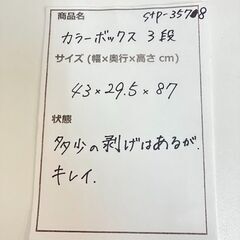 商品名 stp-35708
カラーボックス 3段
サイズ (幅×奥行×高さ cm)
43×29.5×87
状態
多少の剥げはあるが、
キレイ.